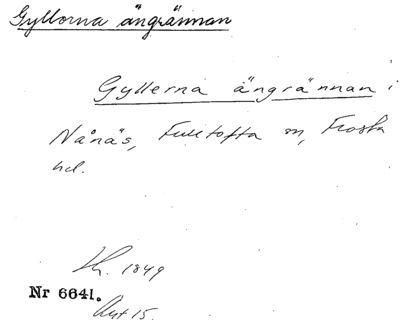 Gyllorna ängrännan
Gyllerna ängrännan i
Nånäs, Fulltofta sn, Frosta
hd.
Lh. 1849
Nr 6641.
Akt 15.